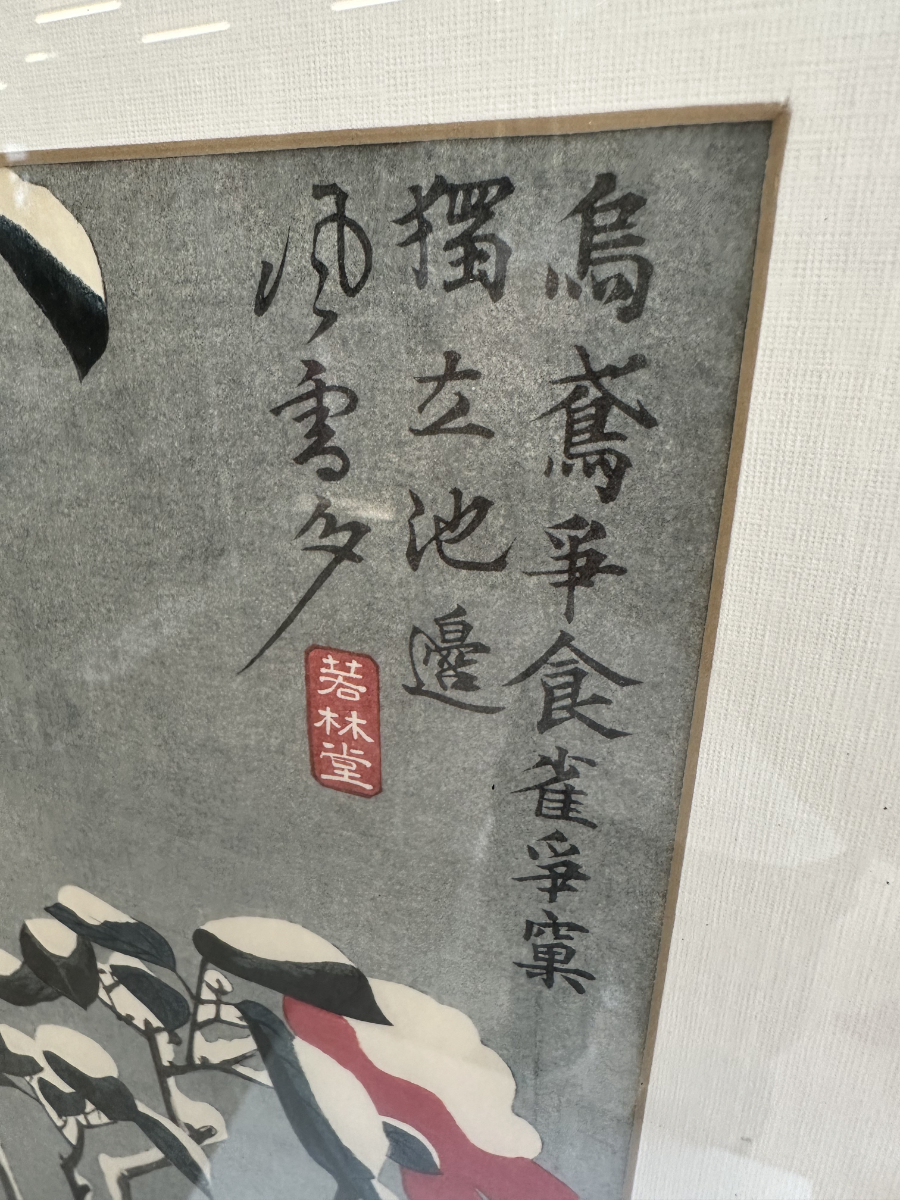 烏鳶爭食雀爭窠
獨立池邊
風雪多
若林堂